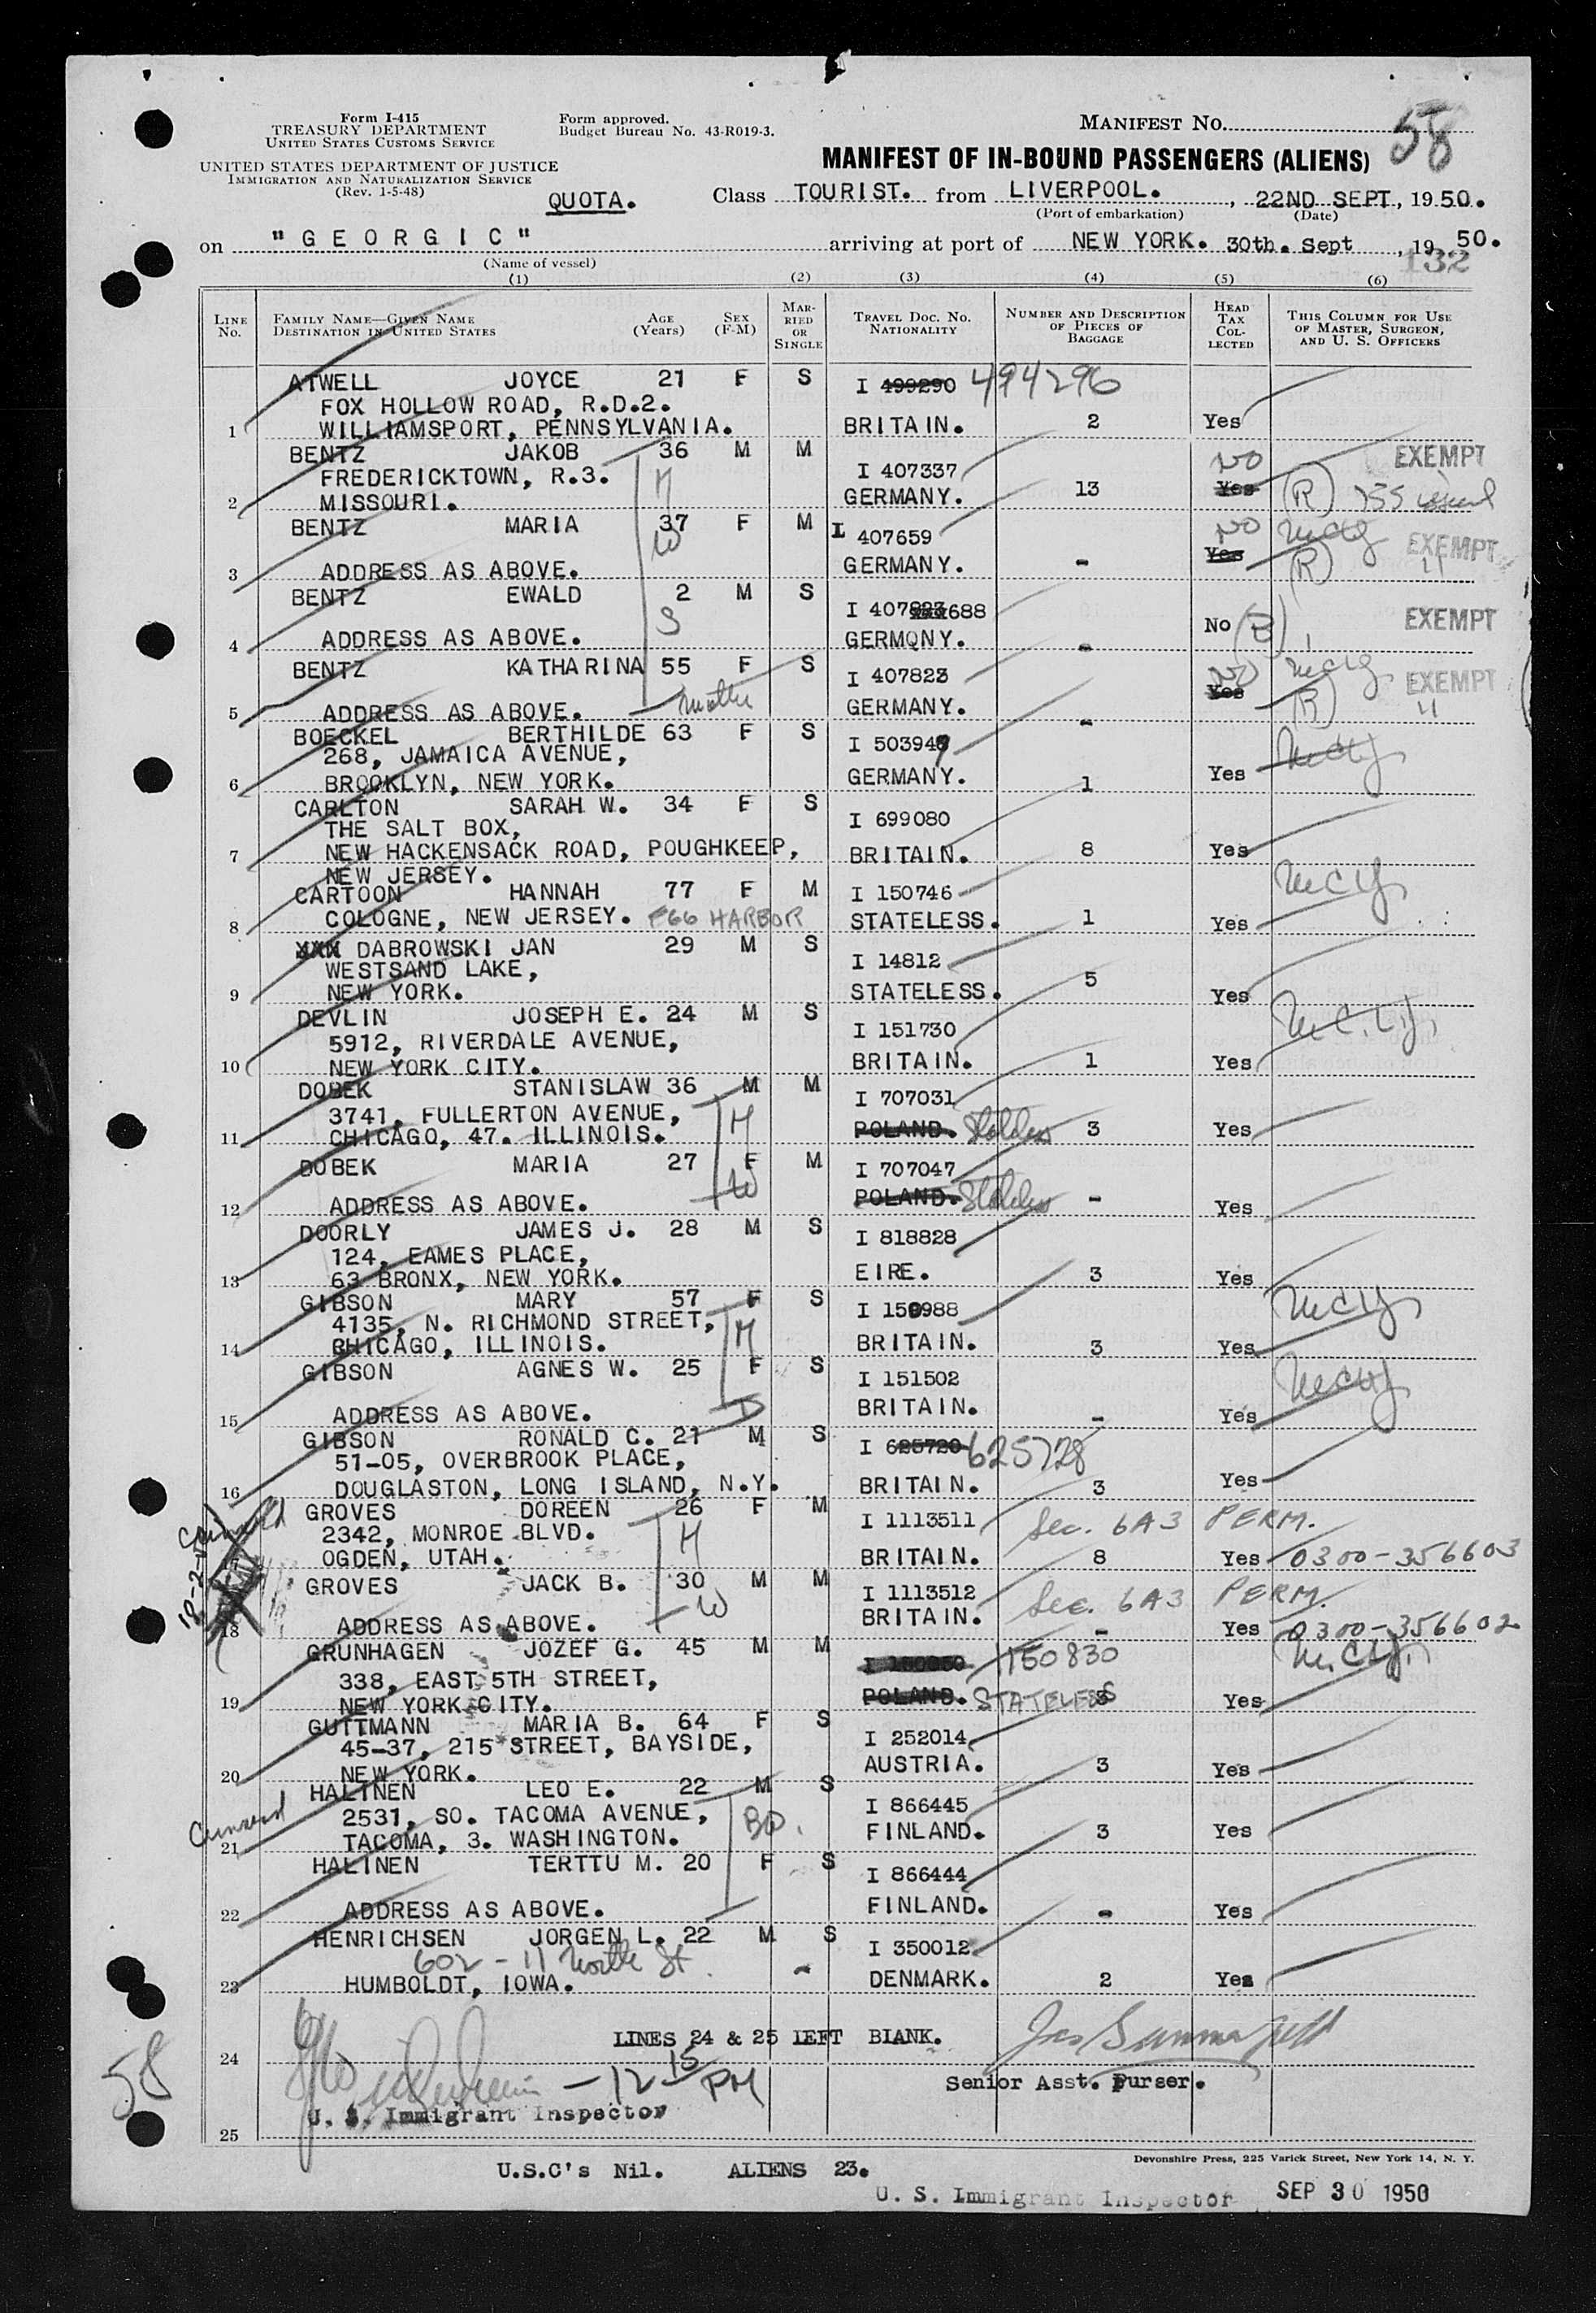 Form I-415
TREASURY DEPARTMENT
UNITED STATES CUSTOMS SERVICE
UNITED STATES DEPARTMENT OF JUSTICE
IMMIGRATION AND NATURALIZATION SERVICE
(Rev. 1-5-48)
Form approved.
Budget Bureau No. 43-R019-3.
MANIFEST NO. 58
MANIFEST OF IN-BOUND PASSENGERS (ALIENS)
QUOTA. Class TOURIST. from LIVERPOOL. , 22ND SEPT, 1950.
(Port of embarkation) (Date)
on "GEORGIC" arriving at port of NEW YORK. 30th. Sept , 19 50.
(Name of vessel) 132
(1) (2) (3) (4) (5) (6)
LINE No. FAMILY NAME—GIVEN NAME DESTINATION IN UNITED STATES AGE (Years) SEX (F-M) MARRIED OR SINGLE TRAVEL DOC. NO. NATIONALITY NUMBER AND DESCRIPTION OF PIECES OF BAGGAGE HEAD TAX COLLECTED THIS COLUMN FOR USE OF MASTER, SURGEON, AND U. S. OFFICERS
ATWELL JOYCE 21 F S I 499290 494296
FOX HOLLOW ROAD, R.D.2.
1 WILLIAMSPORT, PENNSYLVANIA. BRITAIN. 2 Yes
BENTZ JAKOB 36 M M I 407337 NO EXEMPT
FREDERICKTOWN, R.3. H
2 MISSOURI. GERMANY. 13 Yes (R) 155 issued
BENTZ MARIA 37 F M I 407659 NO EXEMPT
W
3 ADDRESS AS ABOVE. GERMANY. - Yes (R) "
BENTZ EWALD 2 M S I 407823 688 EXEMPT
S
4 ADDRESS AS ABOVE. GERMQNY. - No (R)
BENTZ KATHARINA 55 F S I 407823 NO EXEMPT
5 ADDRESS AS ABOVE. Mother GERMANY. - Yes (R) "
BOECKEL BERTHILDE 63 F S I 503949
268, JAMAICA AVENUE,
6 BROOKLYN, NEW YORK. GERMANY. 1 Yes
CARLTON SARAH W. 34 F S I 699080
THE SALT BOX,
7 NEW HACKENSACK ROAD, POUGHKEEP, BRITAIN. 8 Yes
NEW JERSEY.
CARTOON HANNAH 77 F M I 150746
8 COLOGNE, NEW JERSEY. EGG HARBOR STATELESS. 1 Yes
XXX DABROWSKI JAN 29 M S I 14812
WESTSAND LAKE,
9 NEW YORK. STATELESS. 5 Yes
DEVLIN JOSEPH E. 24 M S I 151730
5912, RIVERDALE AVENUE,
10 NEW YORK CITY. BRITAIN. 1 Yes
DOBEK STANISLAW 36 M M I 707031
3741, FULLERTON AVENUE, H
11 CHICAGO, 47. ILLINOIS. POLAND. Stateless 3 Yes
DOBEK MARIA 27 F M I 707047
12 ADDRESS AS ABOVE. W POLAND. Stateless - Yes
DOORLY JAMES J. 28 M S I 818828
124, EAMES PLACE,
13 63 BRONX, NEW YORK. EIRE. 3 Yes
GIBSON MARY 57 F S I 150988
4135, N. RICHMOND STREET, M
14 CHICAGO, ILLINOIS. BRITAIN. 3 Yes
GIBSON AGNES W. 25 F S I 151502
15 ADDRESS AS ABOVE. D BRITAIN. - Yes
GIBSON RONALD C. 21 M S I 625720 625728
51-05, OVERBROOK PLACE,
16 DOUGLASTON, LONG ISLAND, N.Y. BRITAIN. 3 Yes
GROVES DOREEN 26 F M I 1113511 Sec. 6A3 PERM.
2342, MONROE BLVD. H
OGDEN, UTAH. BRITAIN. 8 Yes 0300-356603
GROVES JACK B. 30 M M I 1113512 Sec. 6A3 PERM.
W
18 ADDRESS AS ABOVE. BRITAIN. - Yes 0300-356602
GRUNHAGEN JOZEF G. 45 M M I 150830
338, EAST 5TH STREET,
19 NEW YORK CITY. POLAND. STATELESS Yes
GUTTMANN MARIA B. 64 F S I 252014
45-37, 215 STREET, BAYSIDE,
20 NEW YORK. AUSTRIA. 3 Yes
HALINEN LEO E. 22 M S I 866445
2531, SO. TACOMA AVENUE,
21 TACOMA, 3. WASHINGTON. FINLAND. 3 Yes
HALINEN TERTTU M. 20 F S I 866444
22 ADDRESS AS ABOVE. FINLAND. - Yes
HENRICHSEN JORGEN L. 22 M S I 350012
602 - 11 North St.
23 HUMBOLDT, IOWA. - DENMARK. 2 Yes
LINES 24 & 25 LEFT BLANK.
24
- 12 15 PM
Senior Asst. Purser.
U. S. Immigrant Inspector
25
58
Devonshire Press, 225 Varick Street, New York 14, N. Y.
U.S.C's Nil. ALIENS 23.
U. S. Immigrant Inspector SEP 30 1950